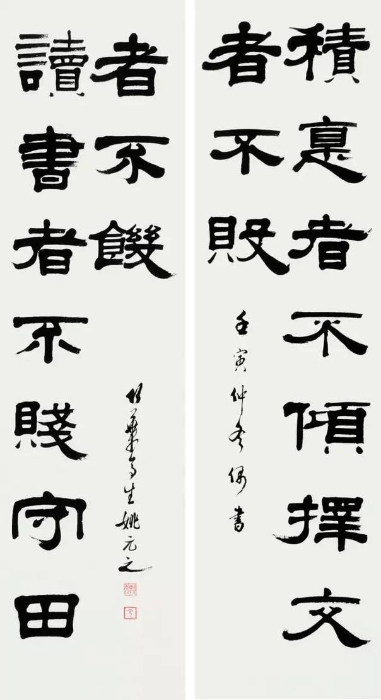 積悳者不傾擇交
者不敗
壬寅仲冬偶書
讀書者不賤守田
者不饑
竹葉亭生姚元之